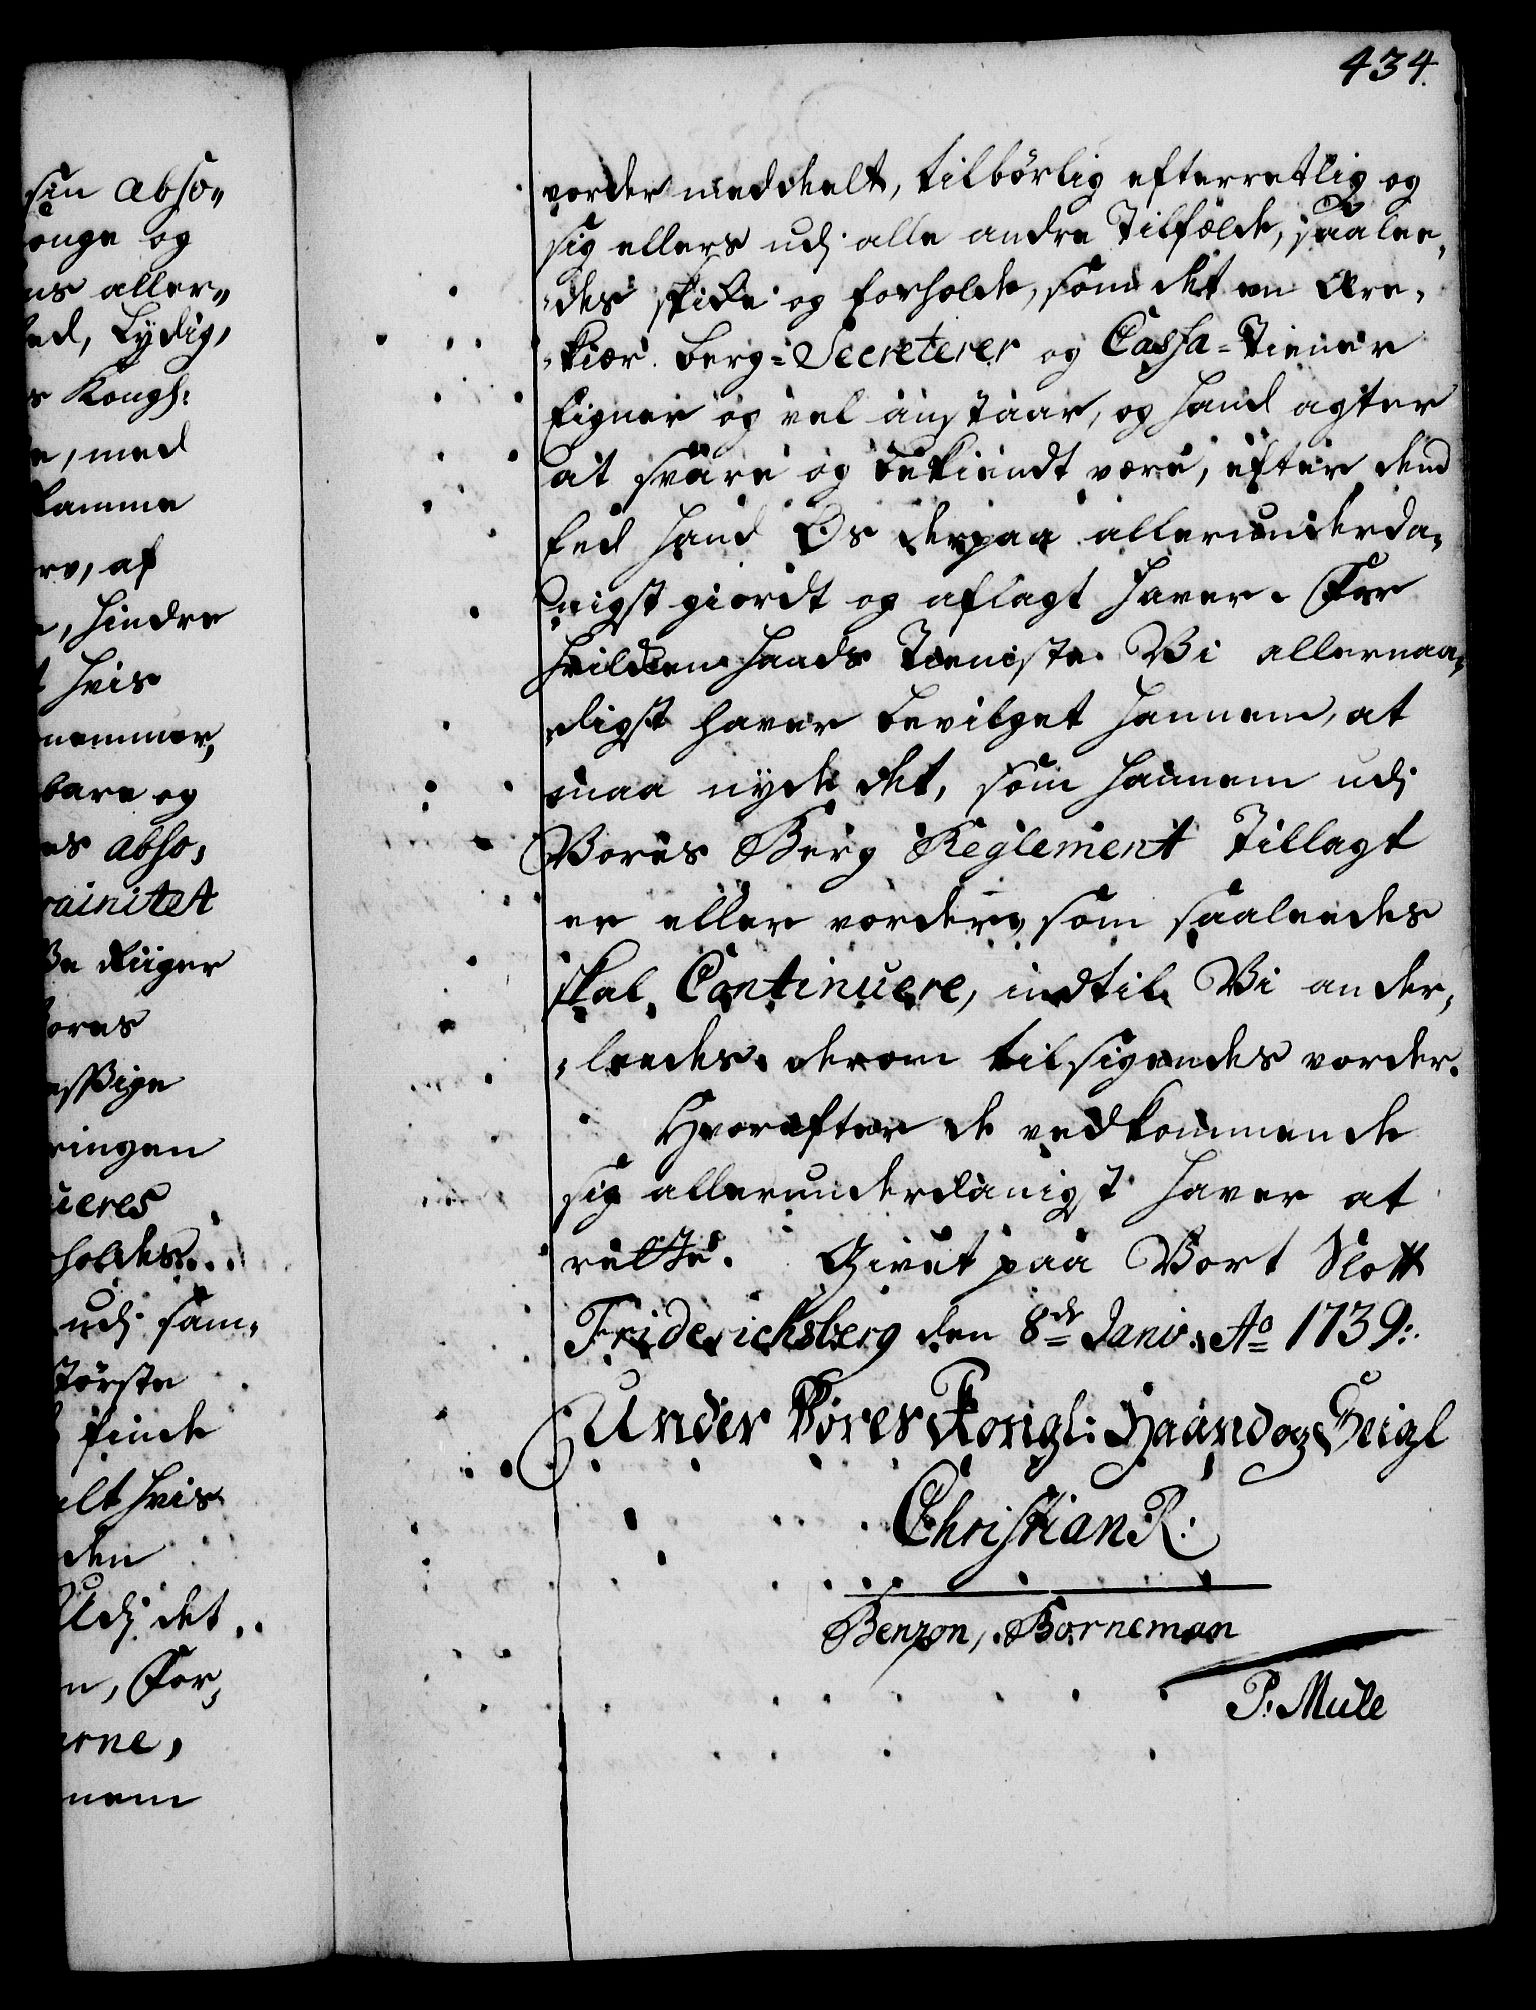 434.
sin abso„
onge og
ns aller„
ed, Lydig,
s Kongl:
e, med
komme
rv, af
e, hindre
t hvis
nemmer,
bare og
es abso,
rainitet
Riiger
Vores
ringen
ueres
holdes
udj sam,
største
finde
alt hvis
den
Udj det
n, For,
erne,
nem
vorder meddeelt, tilbørlig efterretlig og
sig ellers udj alle andre Tilfælde, saalee„
„des skicke og forholde, som det en Ære„
„kiær Berg-Secreterer og Cassa-Tiener
Eigner og vel anstaar, og hand agter
at svare og bekiendt være, efter dend
Eed hand Os derpaa allerunderda„
nigst giordt og aflagt haver. For
hvilcken hands Tieniste Vi allernaa„
digst haver bevilget hannem, at
maa nyde det, som hannem udj
Vores Berg Reglement Tillagt
er eller vorder, som saaleedes
skal Continuere, indtil Vi ander„
„leedes derom tilsigendes vorder.
Hvorefter de vedkommende
sig allerunderdanigst haver at
rette. Givet paa Vort Slott
Friderichsberg den 8de Janv: Ao 1739:
Under Vores Kongl: Haand og Seigl
Christian R:
Benzon, Borneman
P. Mule